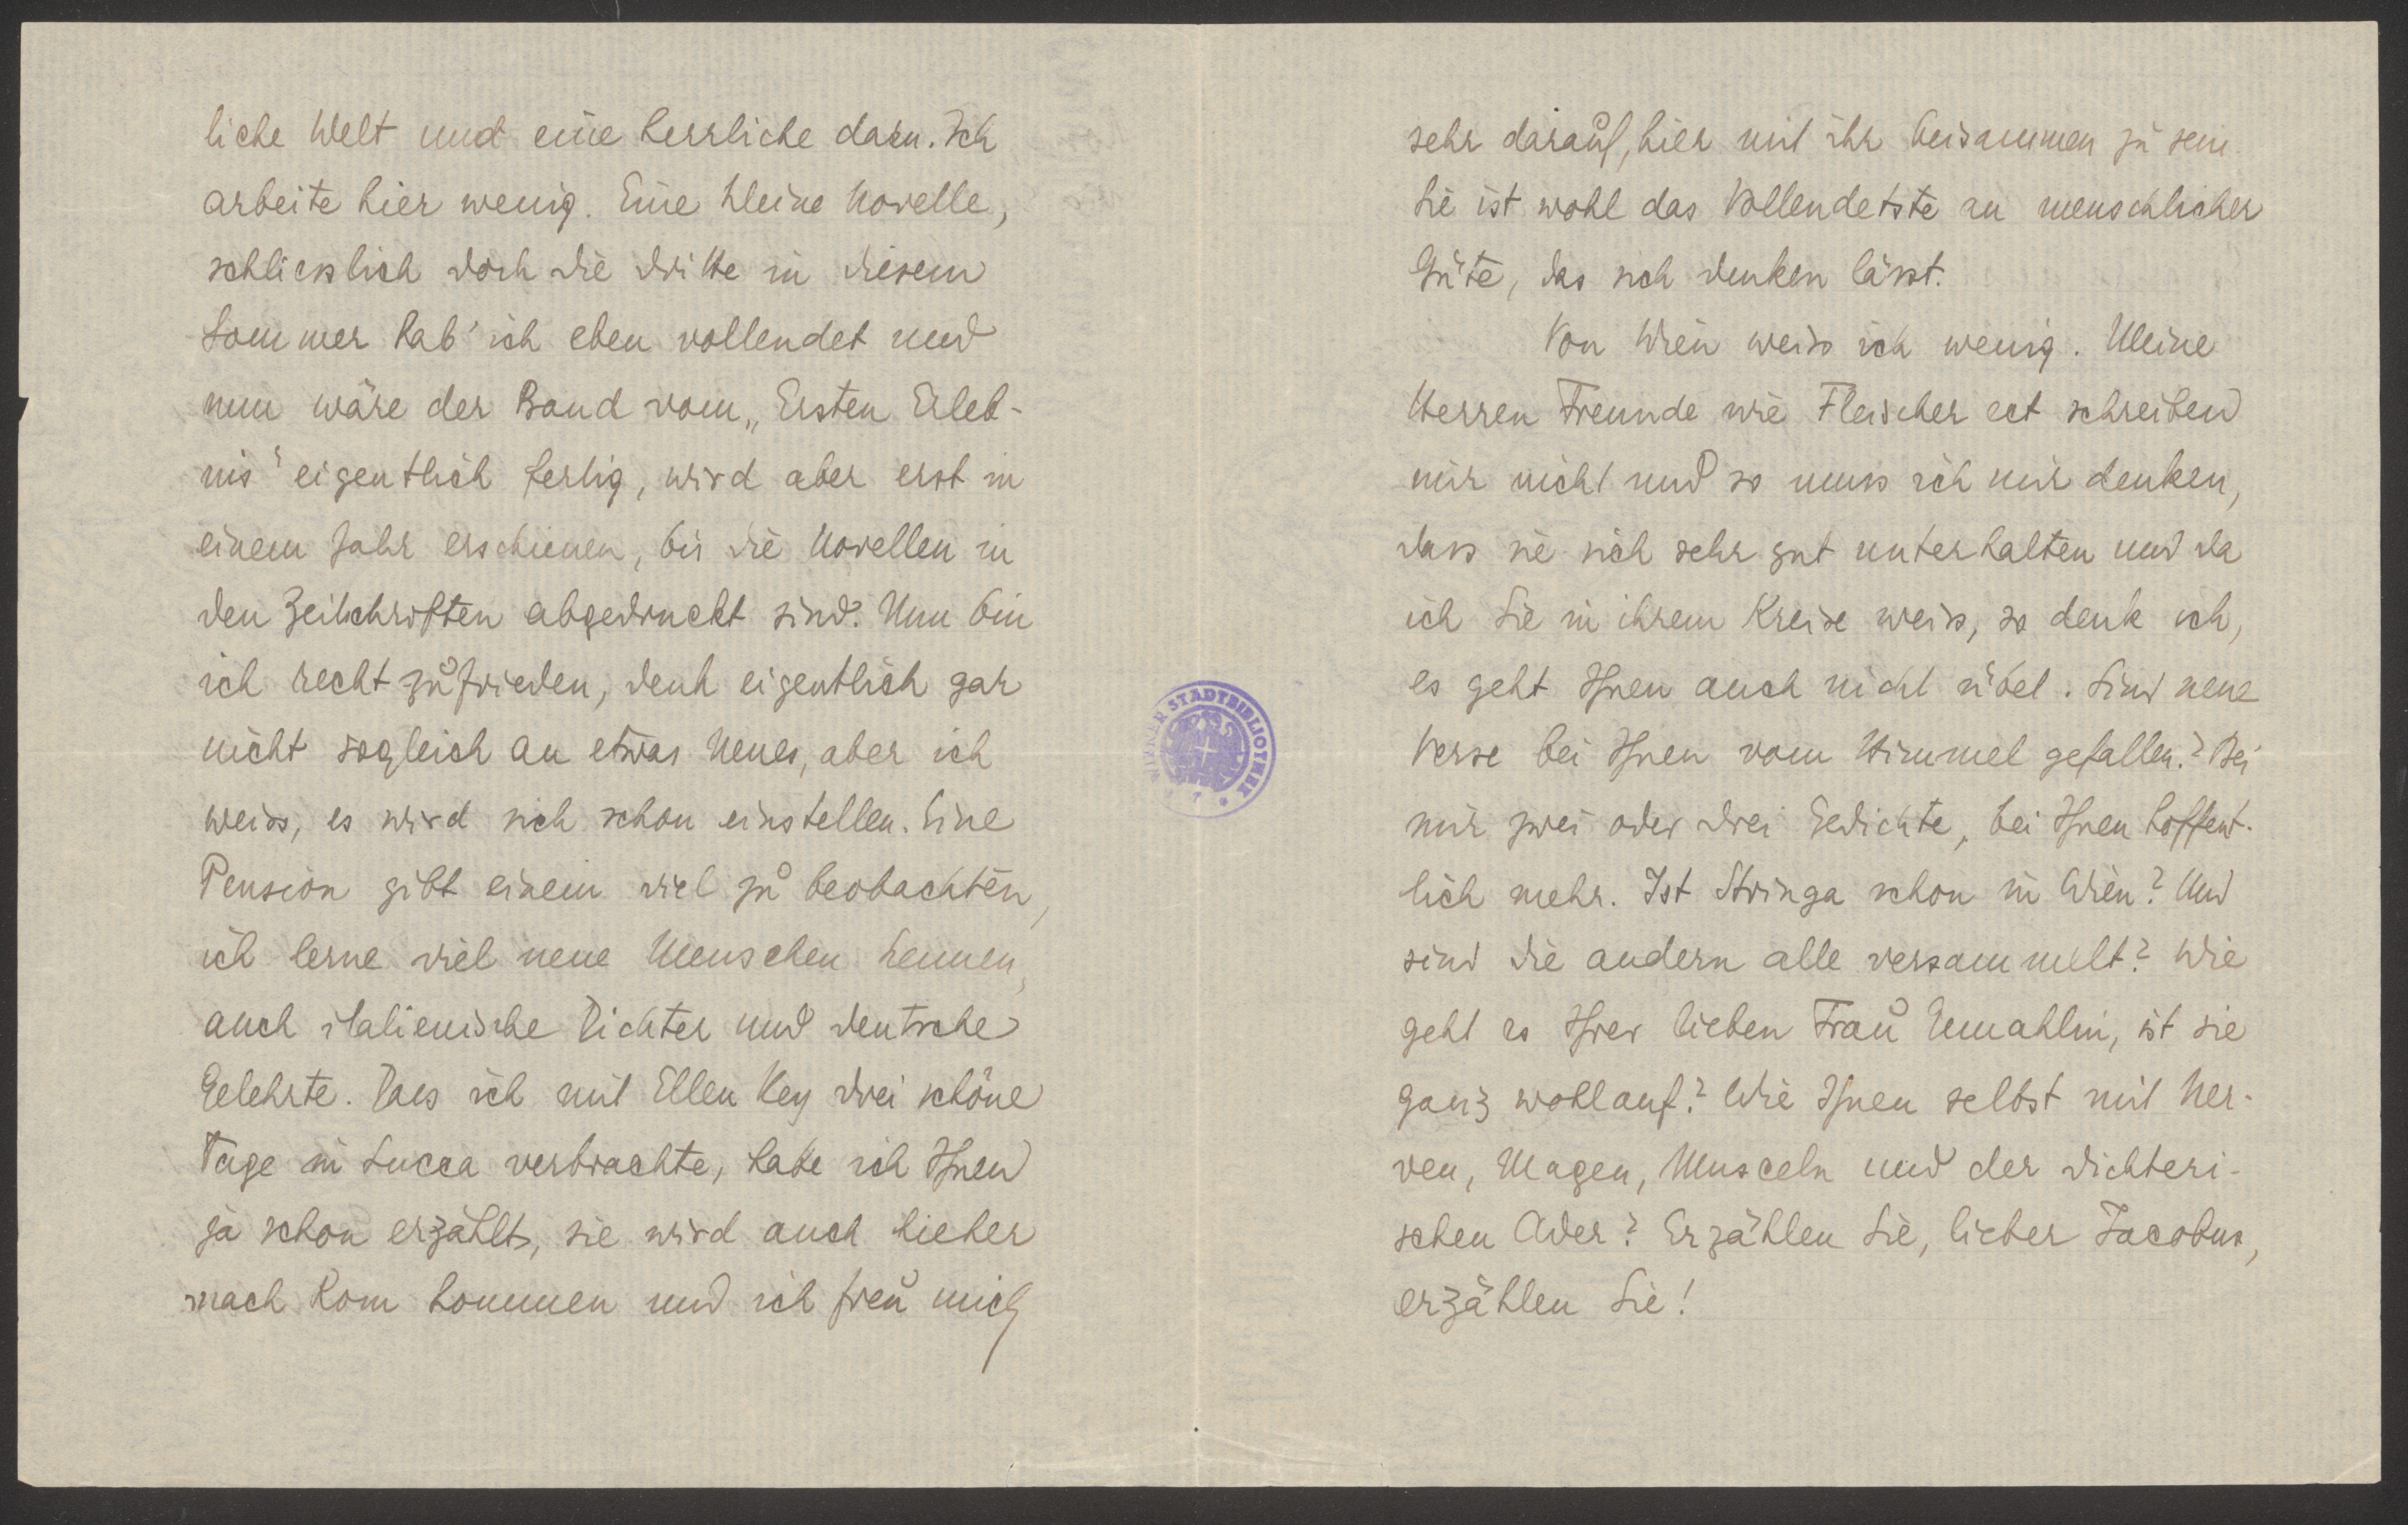 liche Welt und eine herrliche dazu. Ich
arbeite hier wenig. Eine kleine Novelle,
schliesslich doch die dritte in diesem
Sommer hab' ich eben vollendet und
nun wäre der Band vom „Ersten Erleb-
nis" eigentlich fertig, wird aber erst in
einem Jahr erschienen, bis die Novellen in
den Zeitschriften abgedruckt sind. Nun bin
ich recht zufrieden, denk eigentlich gar
nicht sogleich an etwas Neues, aber ich
weiss, es wird sich schon einstellen. Eine
Pension gibt einem viel zu beobachten,
ich lerne viel neue Menschen kennen,
auch italienische Dichter und deutsche
Gelehrte. Dass ich mit Ellen Key drei schöne
Tage in Lucca verbrachte, habe ich Ihnen
ja schon erzählt, sie wird auch hieher
nach Rom kommen und ich freu mich
sehr darauf, hier mit ihr beisammen zu sein.
Sie ist wohl das Vollendetste an menschlicher
Güte, das sich denken lässt.
Von Wien weiss ich wenig. Meine
Herren Freunde wie Fleischer ect schreiben
mir nicht und so muss ich mir denken,
dass sie sich sehr gut unterhalten und da
ich Sie in ihrem Kreise weiss, so denk ich,
es geht Ihnen auch nicht übel. Sind neue
Verse bei Ihnen vom Himmel gefallen? Bei
mir zwei oder drei Gedichte, bei Ihnen hoffent-
lich mehr. Ist Stringa schon in Wien? Und
sind die andern alle versammelt? Wie
geht es Ihrer lieben Frau Gemahlin, ist sie
ganz wohlauf? Wie Ihnen selbst mit Ner-
ven, Magen, Musceln und der dichteri-
schen Ader? Erzählen Sie, lieber Jacobus,
erzählen Sie!
WIENER STADTBIBLIOTHEK